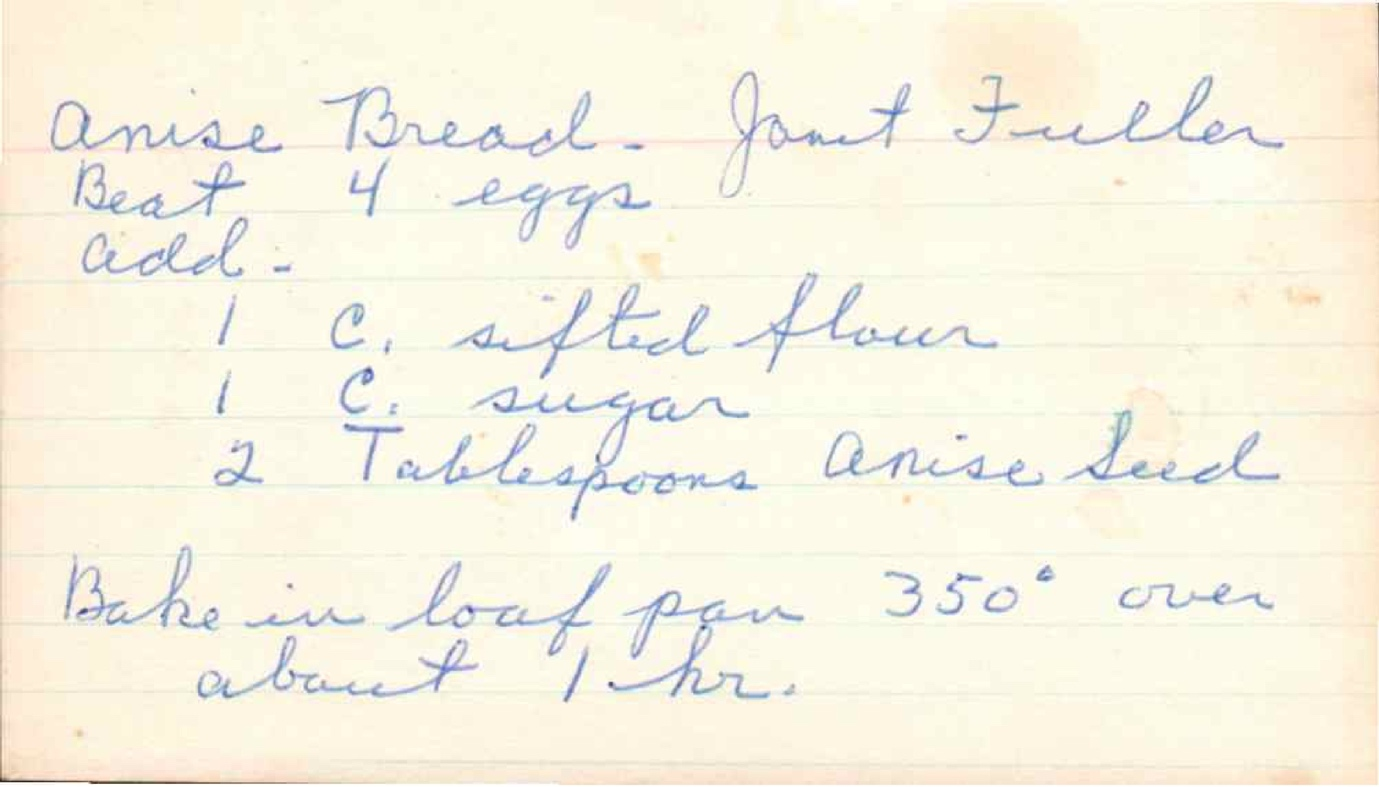 Anise Bread - Janet Fuller
Beat 4 eggs
add -
1 C. sifted flour
1 C. sugar
2 Tablespoons Anise Seed
Bake in loaf pan 350° over
about 1 hr.